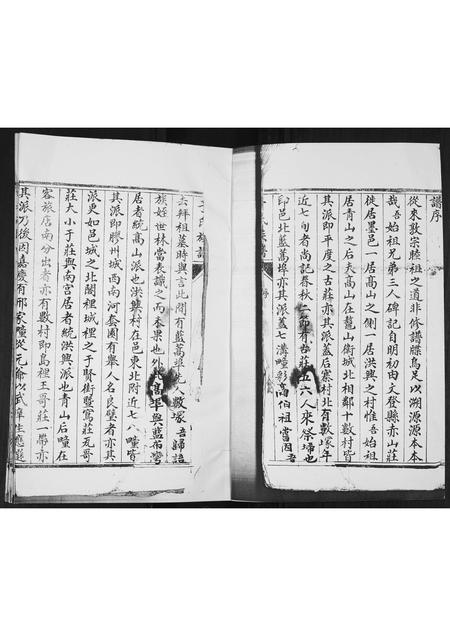 譜序
從來敦宗睦祖之道非修譜牒烏足以溯源源本本
哉吾始祖兄弟三人碑記自明初由文登縣赤山莊
徙居墨邑一居高山之側一居洪興之村惟吾始祖
居青山之后夫高山在鰲山衛城北相鄰十數村皆
其派即平度之古莊亦其派蓋后寨村北有數塚年
近七旬者尚記春秋二節有古莊五六人來祭埽也
即邑北藍蒿埠亦其派吾七溝疃 高伯祖當因
去拜祖墓時與言此間有藍蒿埠 數塚 語歸語
族姪世林當表識之而未果也外此 埠與藍布灣
居者統高山派也洪興村在邑東北附近七八疃皆
其派即膠州城西南河套園有舉人名良璧者亦其
派更如邑城之北閣裡城裡之于賢街暨窩莊瓦哥
莊大小于莊與南宮居者統洪興派也青山后疃在
客旅店南分出者亦有數村即島裡王哥莊一帶亦
其派乃後因嘉慶有邢家疃從元爺以武庠生應選